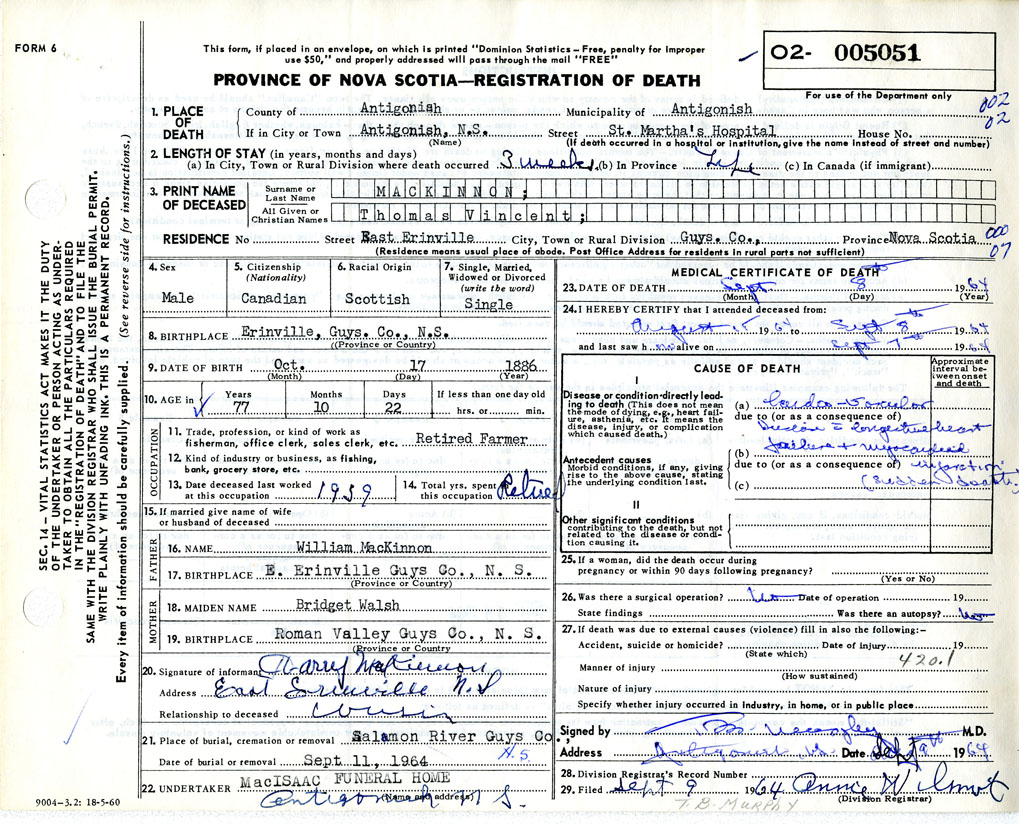 FORM 6
This form, if placed in an envelope, on which is printed "Dominion Statistics – Free, penalty for improper
use $50," and properly addressed will pass through the mail "FREE"
PROVINCE OF NOVA SCOTIA—REGISTRATION OF DEATH
02- 005051
For use of the Department only
002
02
1. PLACE OF DEATH
County of Antigonish Municipality of Antigonish
If in City or Town Antigonish, N.S. Street St. Martha's Hospital House No.
(Name) (If death occurred in a hospital or institution, give the name instead of street and number)
2. LENGTH OF STAY (in years, months and days)
(a) In City, Town or Rural Division where death occurred 3 weeks (b) In Province Life (c) In Canada (if immigrant)
3. PRINT NAME OF DECEASED
Surname or Last Name MACKINNON;
All Given or Christian Names Thomas Vincent;
RESIDENCE No Street East Erinville City, Town or Rural Division Guys. Co., Province Nova Scotia
(Residence means usual place of abode. Post Office Address for residents in rural parts not sufficient)
000
07
4. Sex
Male
5. Citizenship
(Nationality)
Canadian
6. Racial Origin
Scottish
7. Single, Married,
Widowed or Divorced
(write the word)
Single
8. BIRTHPLACE Erinville, Guys. Co., N.S.
(Province or Country)
9. DATE OF BIRTH Oct. 17 1886
(Month) (Day) (Year)
10. AGE in
Years
77
Months
10
Days
22
If less than one day old
hrs. or min.
OCCUPATION
11. Trade, profession, or kind of work as
fisherman, office clerk, sales clerk, etc. Retired Farmer
12. Kind of industry or business, as fishing,
bank, grocery store, etc.
13. Date deceased last worked
at this occupation 1959
14. Total yrs. spent
at this occupation Retired
15. If married give name of wife
or husband of deceased
FATHER
16. NAME William MacKinnon
17. BIRTHPLACE E. Erinville Guys Co., N. S.
(Province or Country)
MOTHER
18. MAIDEN NAME Bridget Walsh
19. BIRTHPLACE Roman Valley Guys Co., N. S.
(Province or Country)
20. Signature of informant Harry McKinnon
Address East Erinville N.S
Relationship to deceased cousin
21. Place of burial, cremation or removal Salamon River Guys Co.,
N.S.
Date of burial or removal Sept 11, 1964
22. UNDERTAKER MacISAAC FUNERAL HOME
(Name and address)
Antigonish N S.
9004-3.2: 18-5-60
MEDICAL CERTIFICATE OF DEATH
23. DATE OF DEATH Sept 8 1964
(Month) (Day) (Year)
24. I HEREBY CERTIFY that I attended deceased from:
August 15 1964 to Sept 8th 1964
and last saw him alive on Sept 7th 1964
CAUSE OF DEATH
Approximate
interval be-
tween onset
and death
I
Disease or condition directly lead-
ing to death (This does not mean
the mode of dying, e.g., heart fail-
ure, asthenia, etc. It means the
disease, injury, or complication
which caused death.)
(a) Cardio-Vascular
due to (or as a consequence of)
Disease = Congestive heart
(b) failure + myocardial
due to (or as a consequence of) infarction
(c) (sudden death)
Antecedent causes
Morbid conditions, if any, giving
rise to the above cause, stating
the underlying condition last.
II
Other significant conditions
contributing to the death, but not
related to the disease or condi-
tion causing it.
25. If a woman, did the death occur during
pregnancy or within 90 days following pregnancy?
(Yes or No)
26. Was there a surgical operation? No Date of operation 19
State findings Was there an autopsy? No
27. If death was due to external causes (violence) fill in also the following:–
Accident, suicide or homicide? Date of injury 19
(State which) 420.1
Manner of injury
(How sustained)
Nature of injury
Specify whether injury occurred in industry, in home, or in public place
Signed by M.D.
Address Antigonish Date Sept 9th 1964
28. Division Registrar's Record Number
29. Filed Sept 9 1964 Annie Wilmot
(Division Registrar)
T. B. MURPHY
SEC. 14 – VITAL STATISTICS ACT MAKES IT THE DUTY
OF THE UNDERTAKER OR PERSON ACTING AS UNDER-
TAKER TO OBTAIN ALL THE PARTICULARS REQUIRED
IN THE "REGISTRATION OF DEATH" AND TO FILE THE
SAME WITH THE DIVISION REGISTRAR WHO SHALL ISSUE THE BURIAL PERMIT.
WRITE PLAINLY WITH UNFADING INK. THIS IS A PERMANENT RECORD.
Every item of information should be carefully supplied. (See reverse side for instructions.)